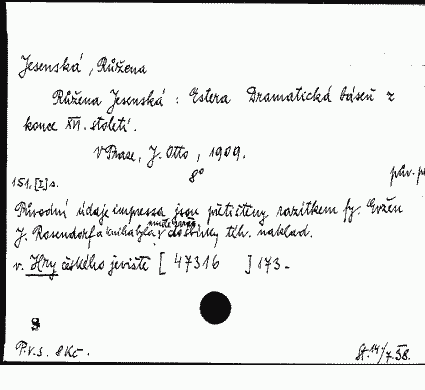 Jesenská, Růžena
Růžena Jesenská : Estera Dramatická báseň z
konce XVI. století.
V Praze, J. Otto, 1909.
8°
přív. p
151.[I] s.
Původní údaje impressa jsou přetištěny razítkem fy. Evžen
J. Rosendorf a kniha byla do sbírky téh. naklad.
v. Hry českého jeviště [47316 ] 173-
8
P.v.s. 8Kč.
St. 14/7.58.